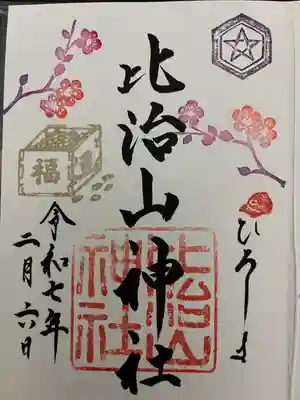 ひろしま
比治山神社
比治山
神社
福
令和七年
二月六日